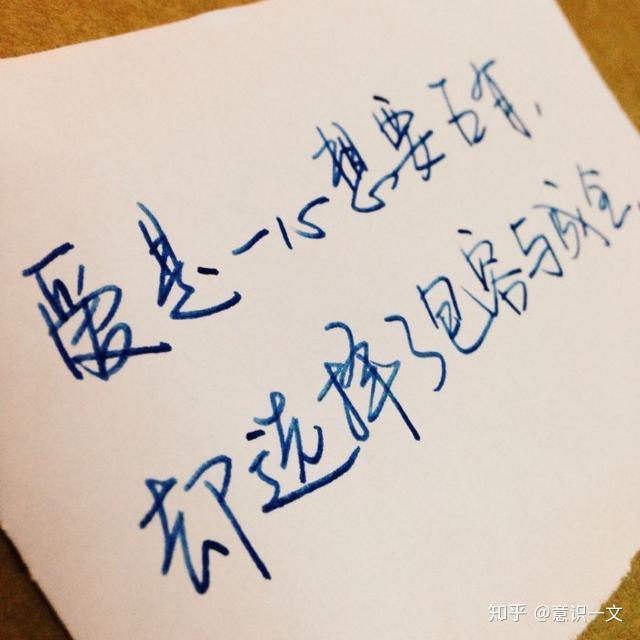 爱是一心想要占有,
却选择了包容与成全。
知乎 @意识一文